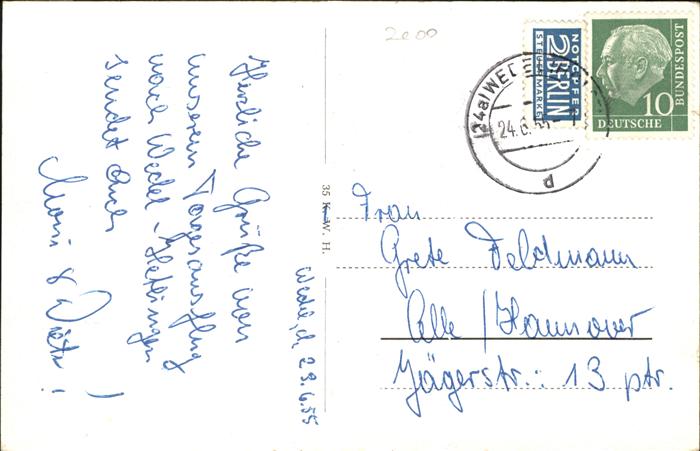 2000
Herzliche Grüße von
unserem Tagesausflug
nach Wedel - Hetlingen
sendet Euch
Wedel, d. 23.6.55
35 K. W. H.
NOTOPFER
2 BERLIN
STEUERMARKE
DEUTSCHE
BUNDESPOST
10
(24a) WEDEL
24.6.55
p
Frau
Grete Feldmann
Celle / Hannover
Jägerstr.: 13 ptr.